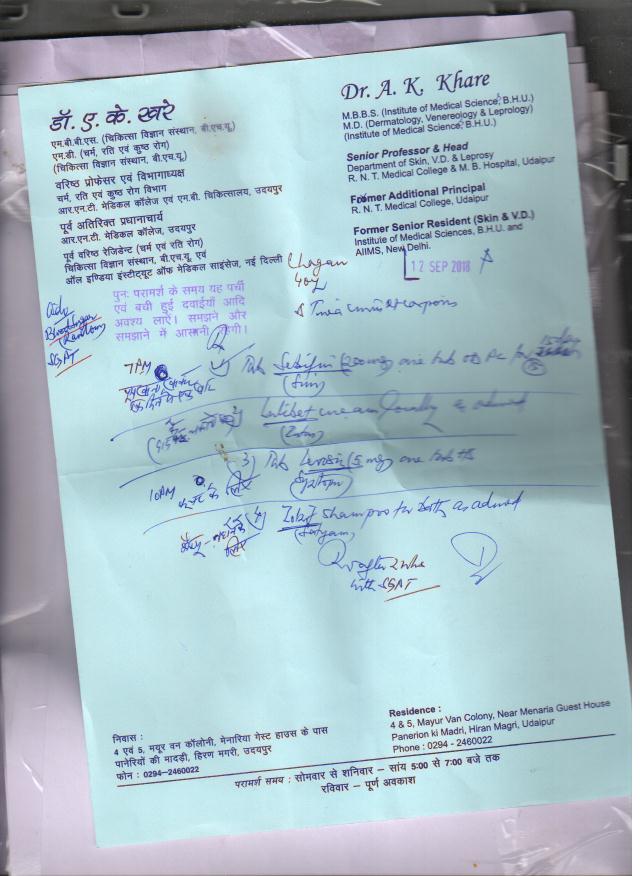 डॉ. ए. के. खरे
एम.बी.बी.एस. (चिकित्सा विज्ञान संस्थान, बी.एच.यू.)
एम.डी. (चर्म, रति एवं कुष्ठ रोग)
(चिकित्सा विज्ञान संस्थान, बी.एच.यू.)
वरिष्ठ प्रोफेसर एवं विभागाध्यक्ष
चर्म, रति एवं कुष्ठ रोग विभाग
आर.एन.टी. मेडिकल कॉलेज एवं एम.बी. चिकित्सालय, उदयपुर
पूर्व अतिरिक्त प्रधानाचार्य
आर.एन.टी. मेडिकल कॉलेज, उदयपुर
पूर्व वरिष्ठ रेजिडेन्ट (चर्म एवं रति रोग)
चिकित्सा विज्ञान संस्थान, बी.एच.यू. एवं
ऑल इण्डिया इंस्टीट्यूट ऑफ मेडिकल साइंसेज, नई दिल्ली
Dr. A. K. Khare
M.B.B.S. (Institute of Medical Science, B.H.U.)
M.D. (Dermatology, Venereology & Leprology)
(Institute of Medical Science, B.H.U.)
Senior Professor & Head
Department of Skin, V.D. & Leprosy
R. N. T. Medical College & M. B. Hospital, Udaipur
Former Additional Principal
R. N. T. Medical College, Udaipur
Former Senior Resident (Skin & V.D.)
Institute of Medical Sciences, B.H.U. and
AIIMS, New Delhi.
12 SEP 2018
Chagan
40y
पुनः परामर्श के समय यह पर्ची
एवं बची हुई दवाईयाँ आदि
अवश्य लाएं। समझने और
समझाने में आसानी होगी।
SGAT
7 PM
1) Tab (250mg) one tab
(Sun)
2) cream locally as advised
3) Tab (5 mg) one tab
(Systopic)
10 PM
4) shampoo for bath as advised
(Satyam)
after 2 wks
with SGAT
निवास :
4 एवं 5, मयूर वन कॉलोनी, मेनारिया गेस्ट हाउस के पास
पानेरियों की मादड़ी, हिरण मगरी, उदयपुर
फोन : 0294-2460022
Residence :
4 & 5, Mayur Van Colony, Near Menaria Guest House
Panerion ki Madri, Hiran Magri, Udaipur
Phone : 0294 - 2460022
परामर्श समय : सोमवार से शनिवार – सांय 5:00 से 7:00 बजे तक
रविवार – पूर्ण अवकाश